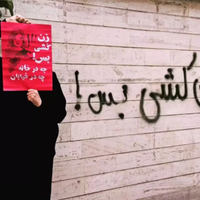 زن
کشی
بس!
چه در خانه
چه در خیابان
کشی بس!